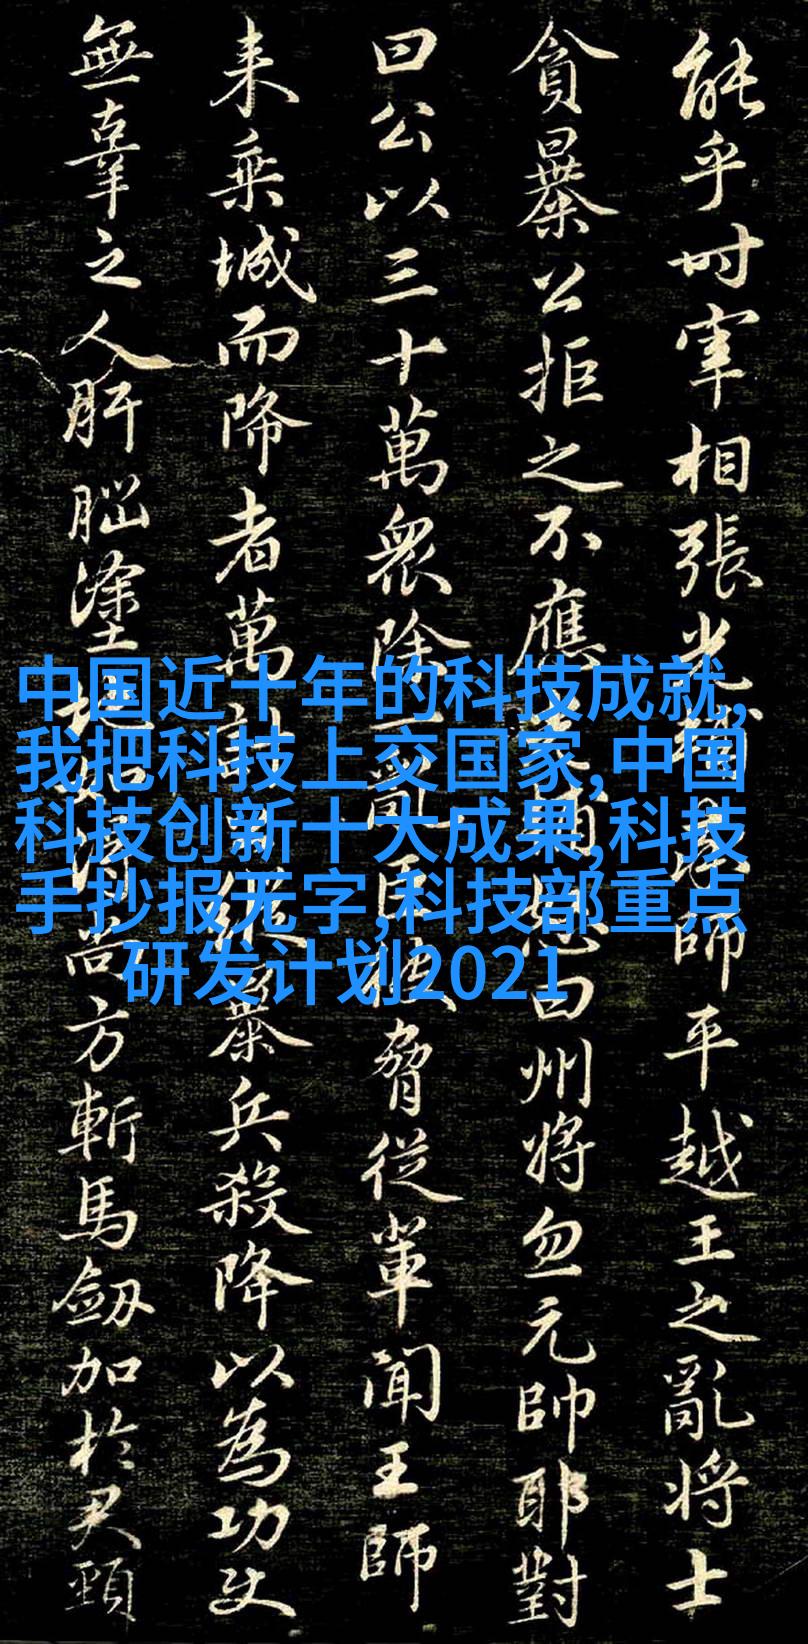 能乎时宰相張光輔師平越王之亂将士
貪暴公拒之不應光輔怒曰州将忽元帥耶對
曰公以三十萬衆除一亂臣脅從軰聞王師
来乘城而降者萬計縱暴兵殺降以為功
無辜之人肝脳塗地尚方斬馬劔加於君頸
中国近十年的科技成就,
我把科技上交国家,中国
科技创新十大成果,科技
手抄报无字,科技部重点
研发计划2021